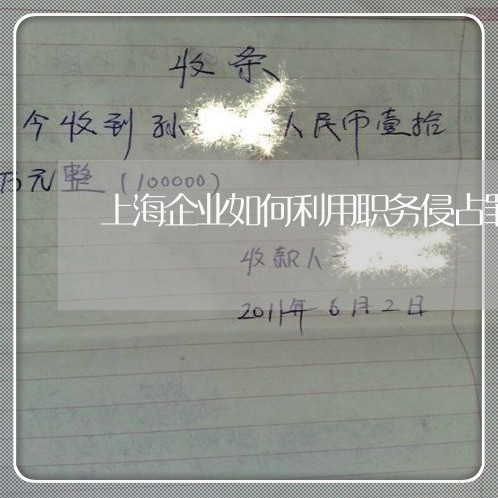 收条
今收到孙 人民币壹拾
万元整（100000）
上海企业如何利用职务侵占罪
收款人
2011年6月2日